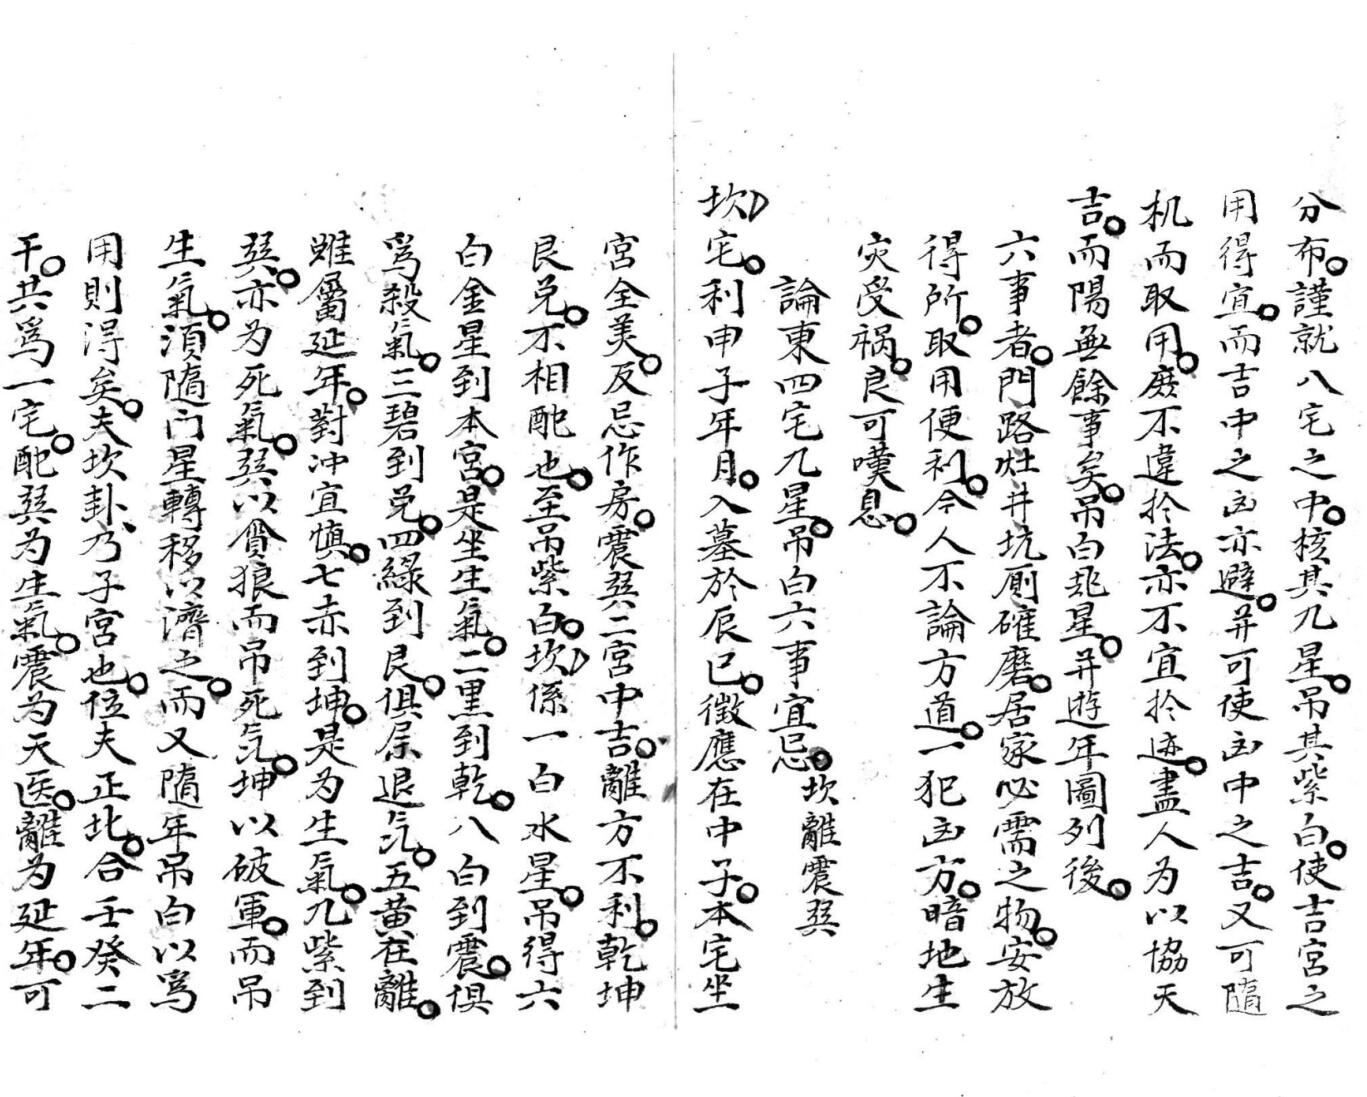 分布。謹就八宅之中。核其九星。吊其紫白。使吉宮之
用得宜。而吉中之凶亦避。并可使凶中之吉。又可隨
机而取用。庶不違扵法。亦不宜扵迹。盡人为以協天
吉。而陽無餘事矣。吊白飛星。并遊年圖列後。
六事者。門路灶井坑厠碓磨。居家必需之物。安放
得所。取用便利。今人不論方道。一犯凶方。暗地生
灾受祸。良可嘆息。
論東四宅九星。吊白六事宜忌。坎離震巽
坎宅。利申子年月。入墓於辰巳。徵應在中子。本宅坐
宮全美。反忌作房。震巽二宮中吉。離方不利。乾坤
艮兑。不相配也。至吊紫白。坎係一白水星。吊得六
白金星到本宮。是坐生氣。二黒到乾。八白到震。俱
爲殺氣。三碧到兑。四綠到艮。俱屬退气。五黃在離。
雖屬延年。對冲宜慎。七赤到坤。是为生氣。九紫到
巽。亦为死氣。巽以貪狼而吊死気。坤以破軍。而吊
生氣。須隨门星轉移以濟之。而又隨年吊白以爲
用則得矣。夫坎卦乃子宮也。位夫正北。合壬癸二
干。共爲一宅。配巽为生氣。震为天医。離为延年。可